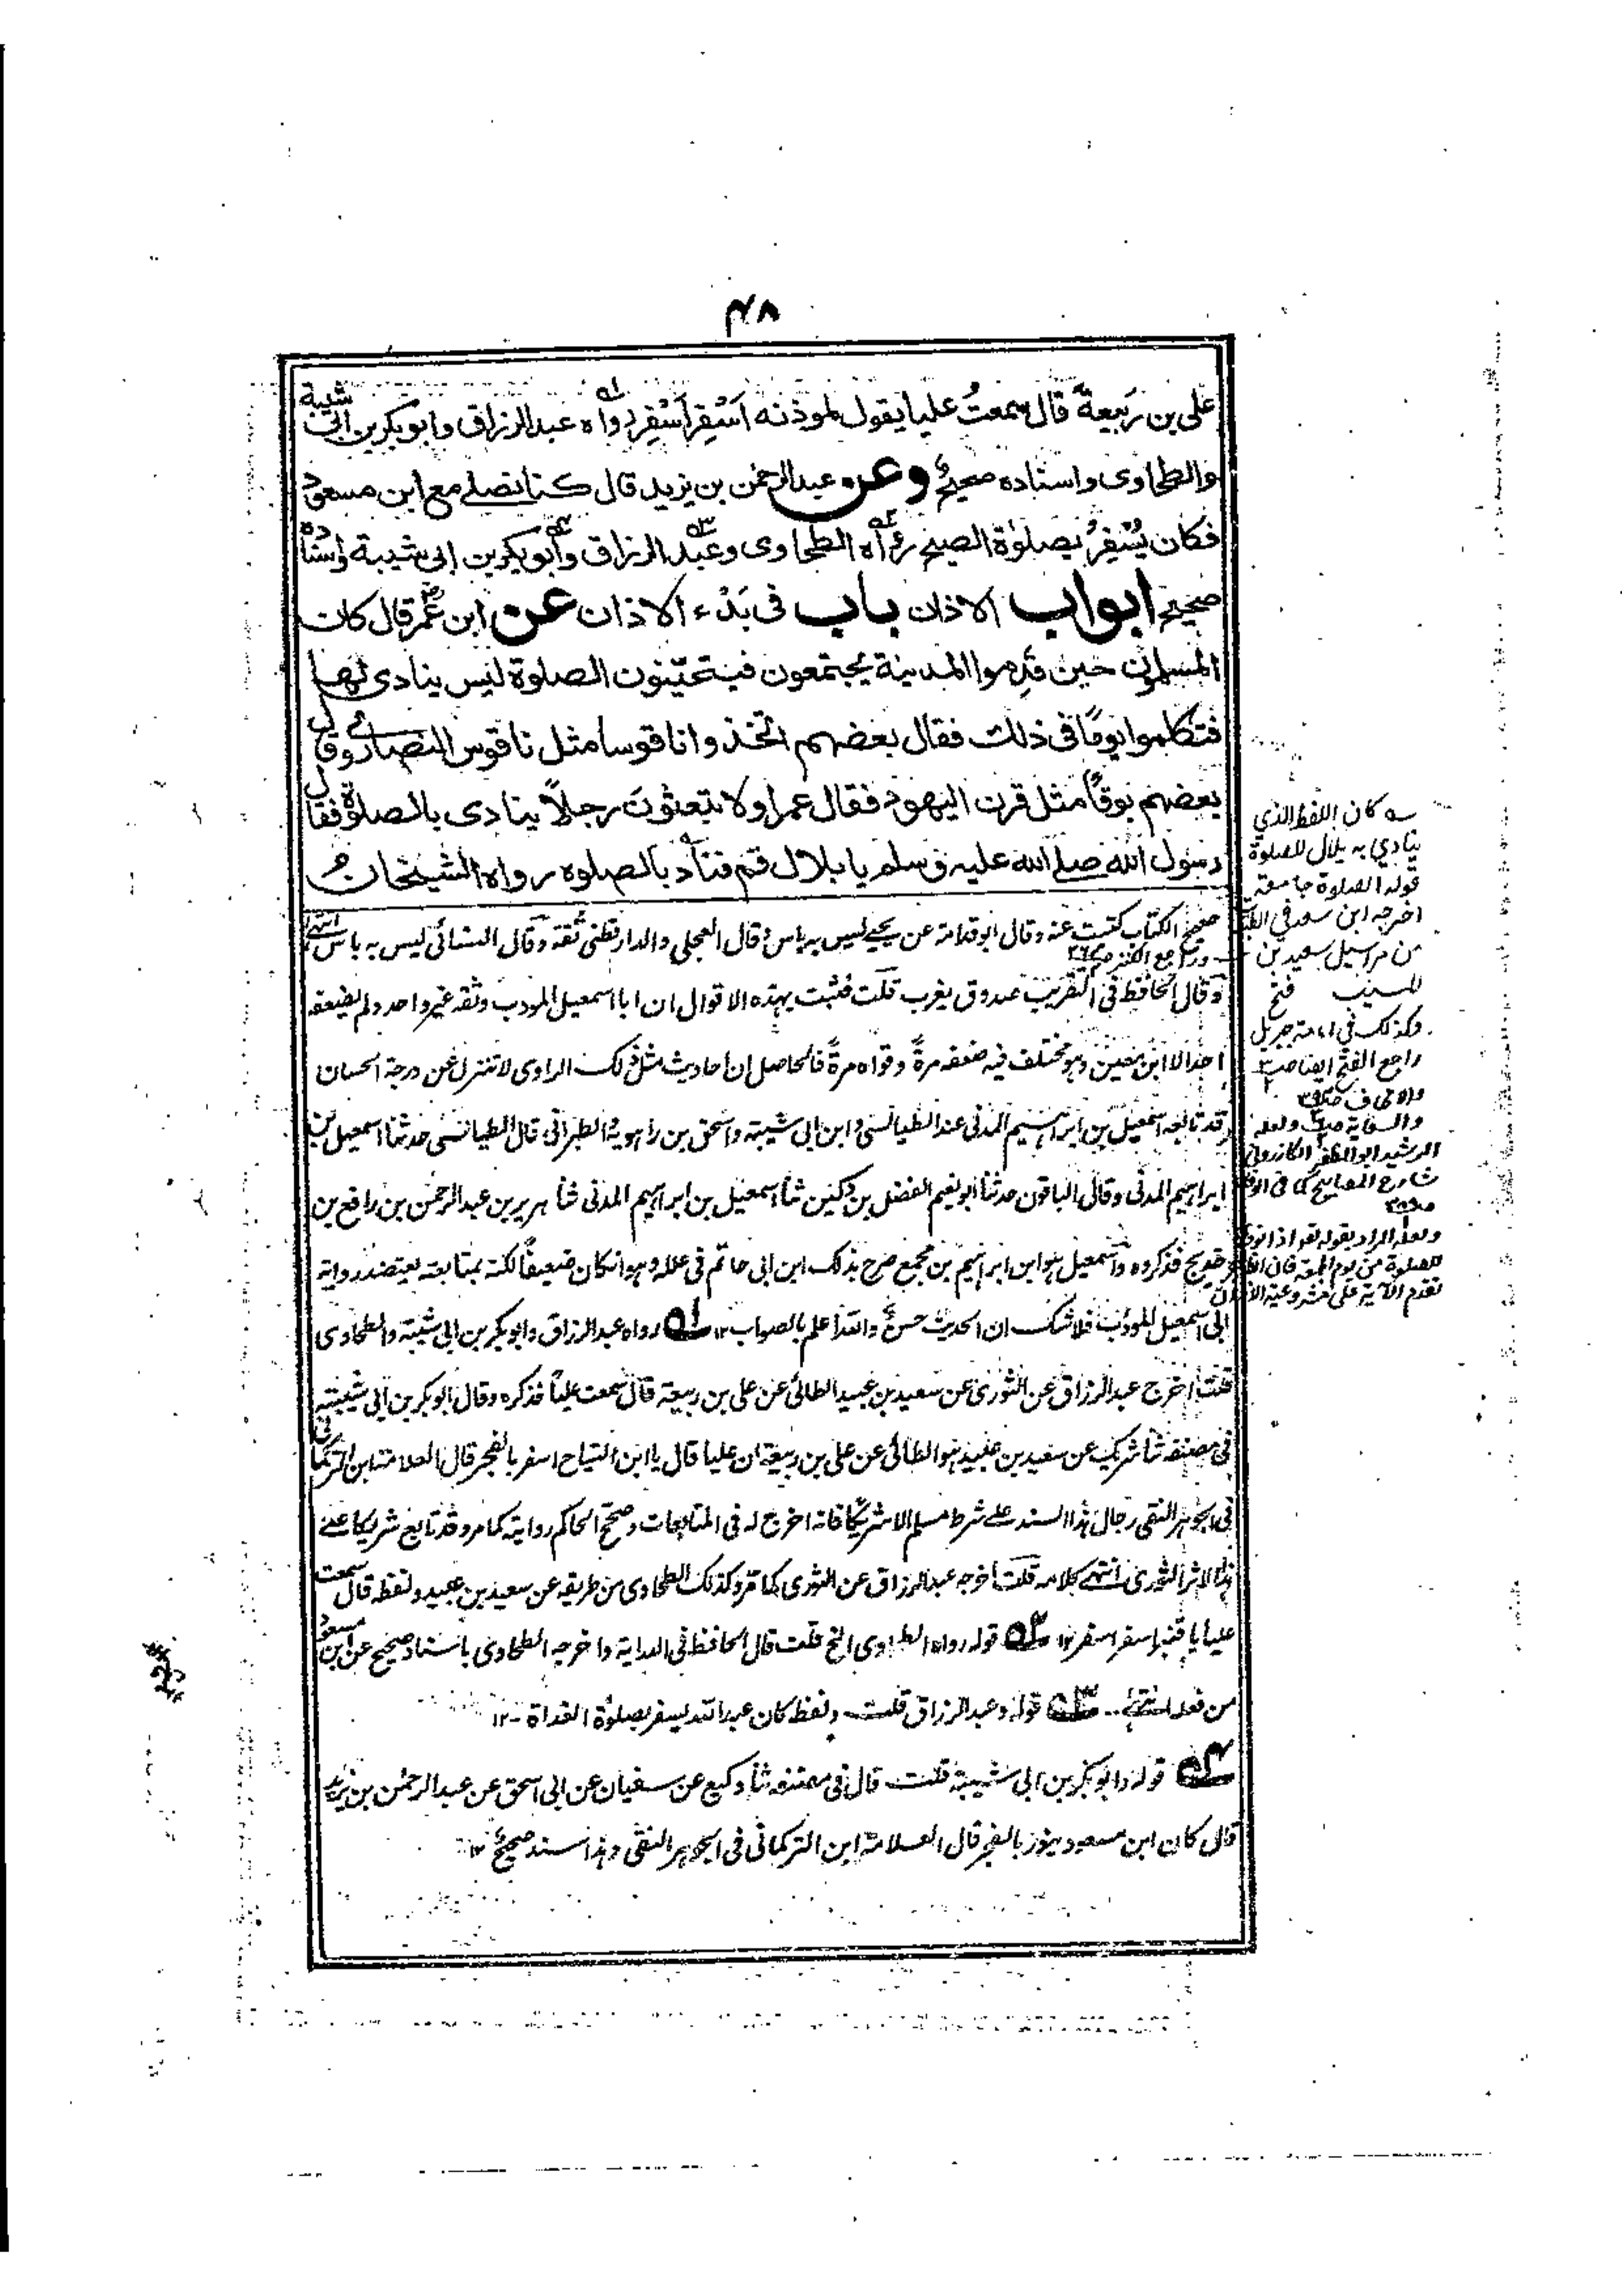 ٤٨
علی بن رَبیعةَ قال سمعتُ علیا یقول لموذنه اَسْفِر اَسْفِر رواه عبدالرزاق وابوبکر بن ابی شیبة
والطحاوی واسناده صحیح وعن عبدالرحمٰن بن یزید قال کنا نصلے مع ابن مسعود
فکان یُسْفِرُ بصلوٰة الصبح رواه الطحاوی وعبد الرزاق وابوبکر بن ابی شیبة واسناده
صحیح ابواب الاذان باب فی بَدْء الاذان عن ابن عُمَر قال کان
المسلمون حین قدِموا المدینة یجتمعون فیتحیّنون الصلوة لیس ینادی لها
فتکلموا یومًا فی ذلک فقال بعضهم اتخذوا ناقوسا مثل ناقوس النصارے وقال
بعضهم بوقًا مثل قرن الیهود فقال عمر اولا تبعثونَ رجلاً ینادی بالصلوة فقال
رسول الله صلے الله علیه وسلم یا بلال قم فناد بالصلوة رواه الشیخان
صحیح الکتاب کتبت عنه وقال ابوقدامة عن یحیے لیس به باس وقال العجلی والدارقطنی ثقة وقال النسائی لیس به باس انتهے
وراجع الکنز
وقال الحافظ فی التقریب صدوق یغرب قلت فثبت بهذه الاقوال ان ابا اسمعیل المودب وثقه غیر واحد ولم یضعفه
احد الا ابن معین وهو مختلف فیه ضعفه مرةً وقواه مرةً فالحاصل ان احادیث مثل ذلک الراوی لا تنزل عن درجة الحسان
وقد تابعه اسمعیل بن ابراهیم المدنی عند الطیالسی وابن ابی شیبة واسحق بن راهویه والطبرانی قال الطیالسی حدثنا اسمعیل بن
ابراهیم المدنی وقال الباقون حدثنا ابونعیم الفضل بن دکین ثنا اسمعیل بن ابراهیم المدنی ثنا هریر بن عبدالرحمٰن بن رافع بن
خدیج فذکروه واسمعیل هو ابن ابراهیم بن مجمع صرح بذلک ابن ابی حاتم فی علله وهو وانکان ضعیفًا لکنه بمتابعته یعتضد روایة
ابی اسمعیل المودب فلا شک ان الحدیث حسن والله اعلم بالصواب ١٢ ۵۱ رواه عبدالرزاق وابوبکر بن ابی شیبة والطحاوی
قلت اخرج عبدالرزاق عن الثوری عن سعید بن عبید الطائی عن علی بن ربیعة قال سمعت علیاً فذکره وقال ابوبکر بن ابی شیبة
فی مصنفه ثنا شریک عن سعید بن عبید هو الطائی عن علی بن ربیعة ان علیا قال یا ابن التیاح اسفر بالفجر قال العلامة ابن الترکمانی
فی الجوهر النقی رجال هذا السند علے شرط مسلم الا شریکا فانه اخرج له فی المتابعات وصحح الحاکم روایته کما مر وقد تابع شریکا علے
هذا الاثر الثوری انتهے کلامه قلت اخرجه عبدالرزاق عن الثوری کما مر وکذلک الطحاوی من طریقه عن سعید بن عبید ولفظه قال سمعت
علیا یا قنبر اسفر اسفر ١٢ ۵۲ قوله رواه الطحاوی الخ قلت قال الحافظ فی الدرایة واخرجه الطحاوی باسناد صحیح عن ابن مسعود
من فعله انتهے ۵۳ قوله وعبدالرزاق قلت ولفظه کان عبدالله یسفر بصلوة الغداة ١٢
۵۴ قوله وابوبکر بن ابی شیبة قلت قال فی مصنفه ثنا وکیع عن سفیان عن ابی اسحق عن عبدالرحمٰن بن یزید
قال کان ابن مسعود ینور بالفجر قال العلامة ابن الترکمانی فی الجوهر النقی وهذا سند صحیح ١٢
کان اللفظ الذی
ینادی به بلال للصلوة
قوله الصلوة جامعة
اخرجه ابن سعد فی الطبقات
من مراسیل سعید بن
المسیب فتح
وکذلک فی امامة جبریل
راجع الفتح ایضا
والسعایة ولعله
الرشید ابوالمظفر الکازرونی
شارح المصابیح کما فی
ولعله المراد بقوله تعالی اذا نودی
للصلوة من یوم الجمعة فان
تقدم الآیة علی مشروعیة الاذان